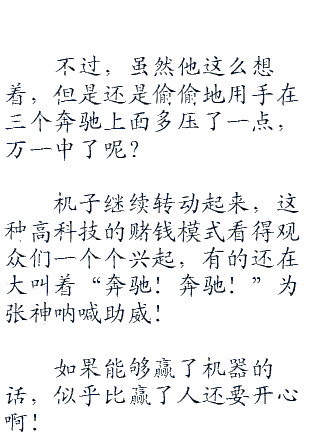 不过，虽然他这么想
着，但是还是偷偷地用手在
三个奔驰上面多压了一点，
万一中了呢？
机子继续转动起来，这
种高科技的赌钱模式看得观
众们一个个兴起，有的还在
大叫着“奔驰！奔驰！”为
张神呐喊助威！
如果能够赢了机器的
话，似乎比赢了人还要开心
啊！